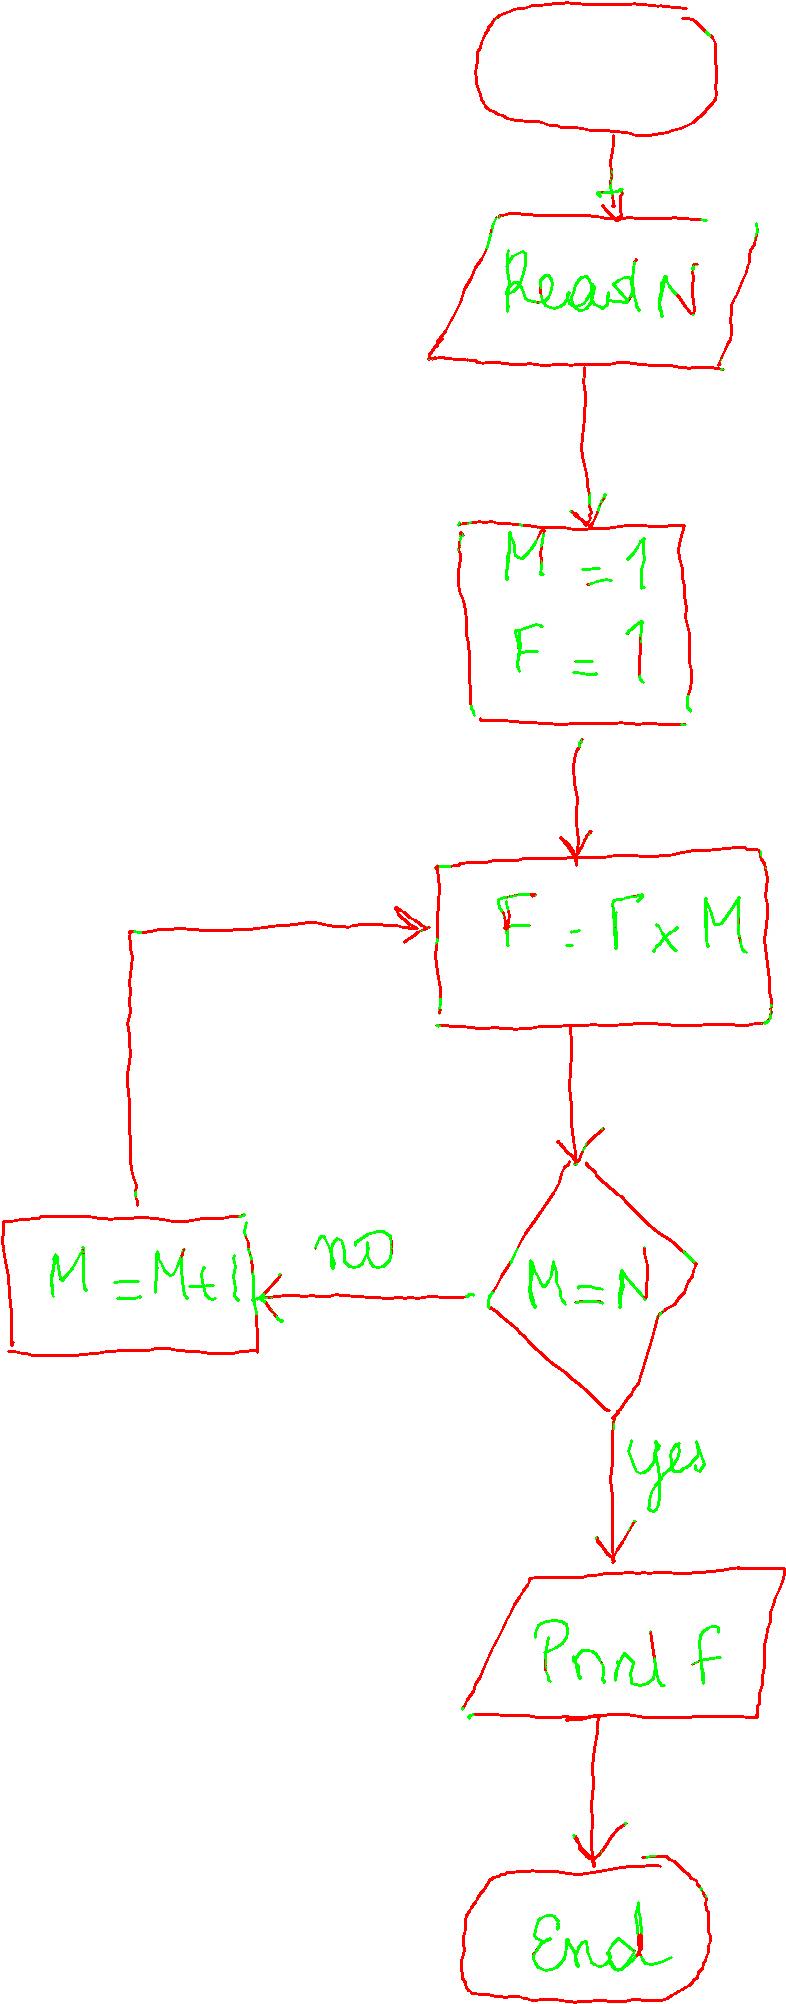 Read N
M = 1
F = 1
F = F x M
M = N
no
M = M+1
yes
Print f
End